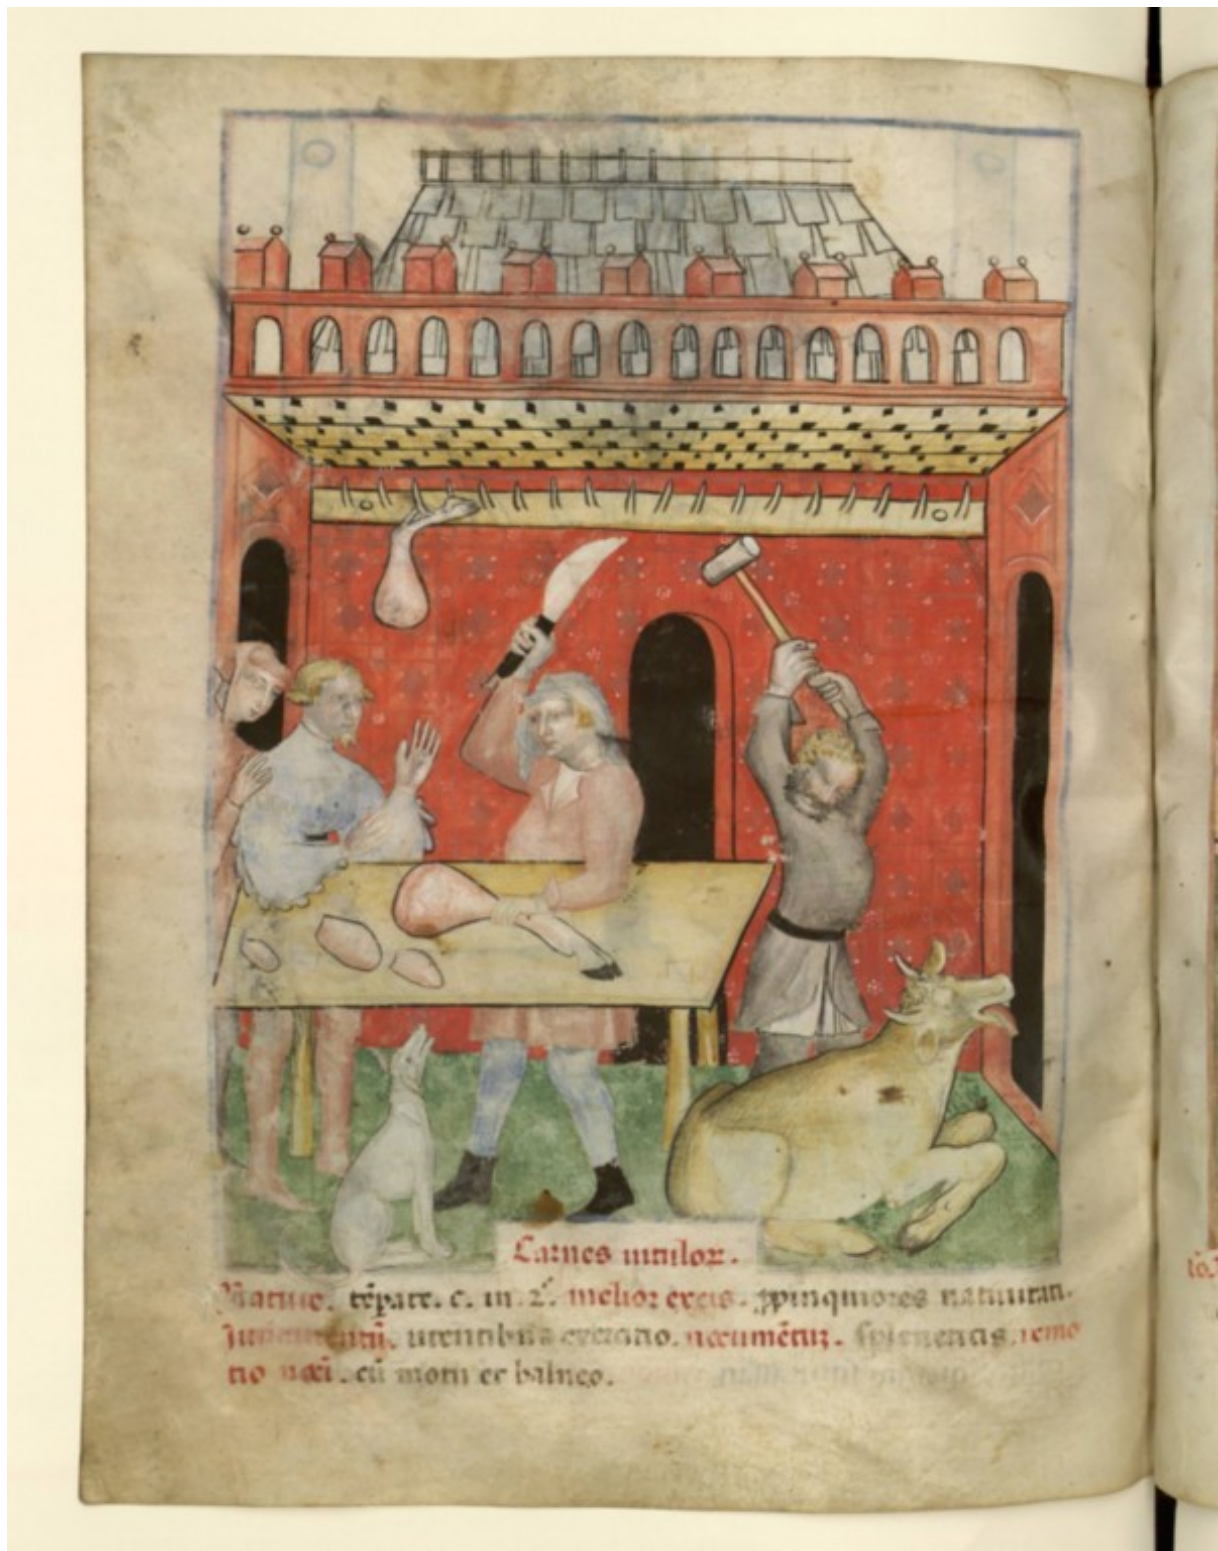 Carnes uitulor.
Nature. tēpate. c. in. 2°. melior ex eis. ꝓpinquiores natiuitati.
Iuuamentū. utentibus exercitio. nocumētuʒ. spleneticis. remo
tio noci. cū motu et balneo.